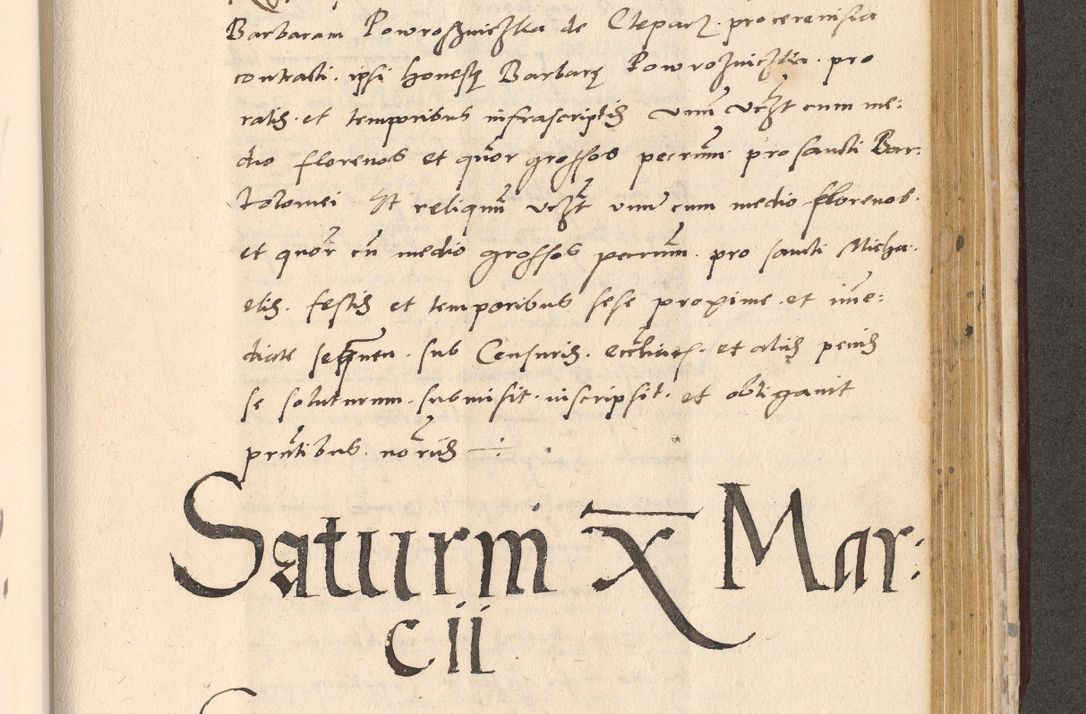 Barbaram Powroʒniczka de Cleparz. pro cerevisia
contracti. ipsi honestę Barbarę Powroʒniczka. pro
ratis. et temporibus infrascriptis unum vcʒt cum me:
dio florenos et quor grossos pecunm pro sancti Bar:
tolomei Et reliquum vcʒt unum cum medio florenos.
et quor cum medio grossos pecunm. pro sancti Micha:
elis. festis et temporibus sese proxime. et imme:
diate sequentu. sub Censuris. eccliticis. et aliis penis
se soluturum. submisit. inscripsit. et obligavit
pntibus. notariis
Saturni X Mar:
cii